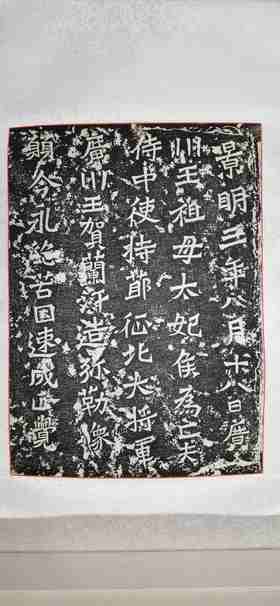 景明三年八月十八日廣
川王祖母太妃侯為亡夫
侍中使持節征北大將軍
廣川王賀蘭汗造弥勒像
願令永絕苦因速成正覺